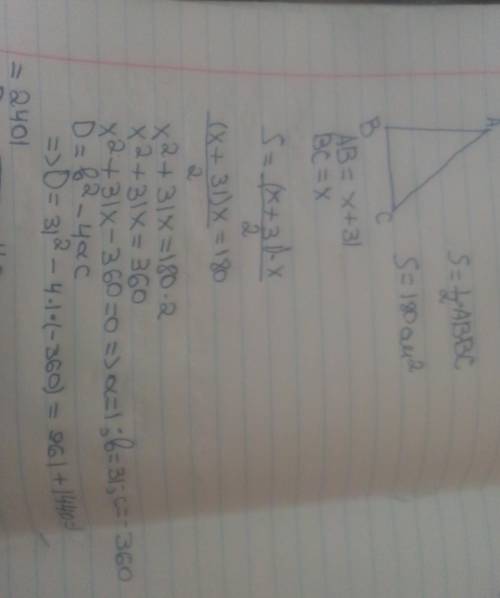 A
B
C
S = 1/2 AB·BC
S = 180 см²
AB = x + 31
BC = x
S = (x + 31)·x / 2
(x + 31)x / 2 = 180
x² + 31x = 180·2
x² + 31x = 360
x² + 31x - 360 = 0 => a = 1; b = 31; c = -360
D = b² - 4ac
=> D = 31² - 4·1·(-360) = 961 + 1440 =
= 2401